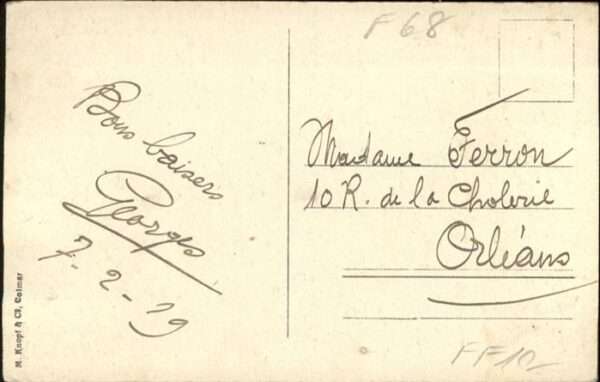 F 68
Bons baisers
Georges
7-2-19
Madame Ferron
10 R. de la Cholerie
Orléans
M. Knopf & Cie, Colmar
FF10